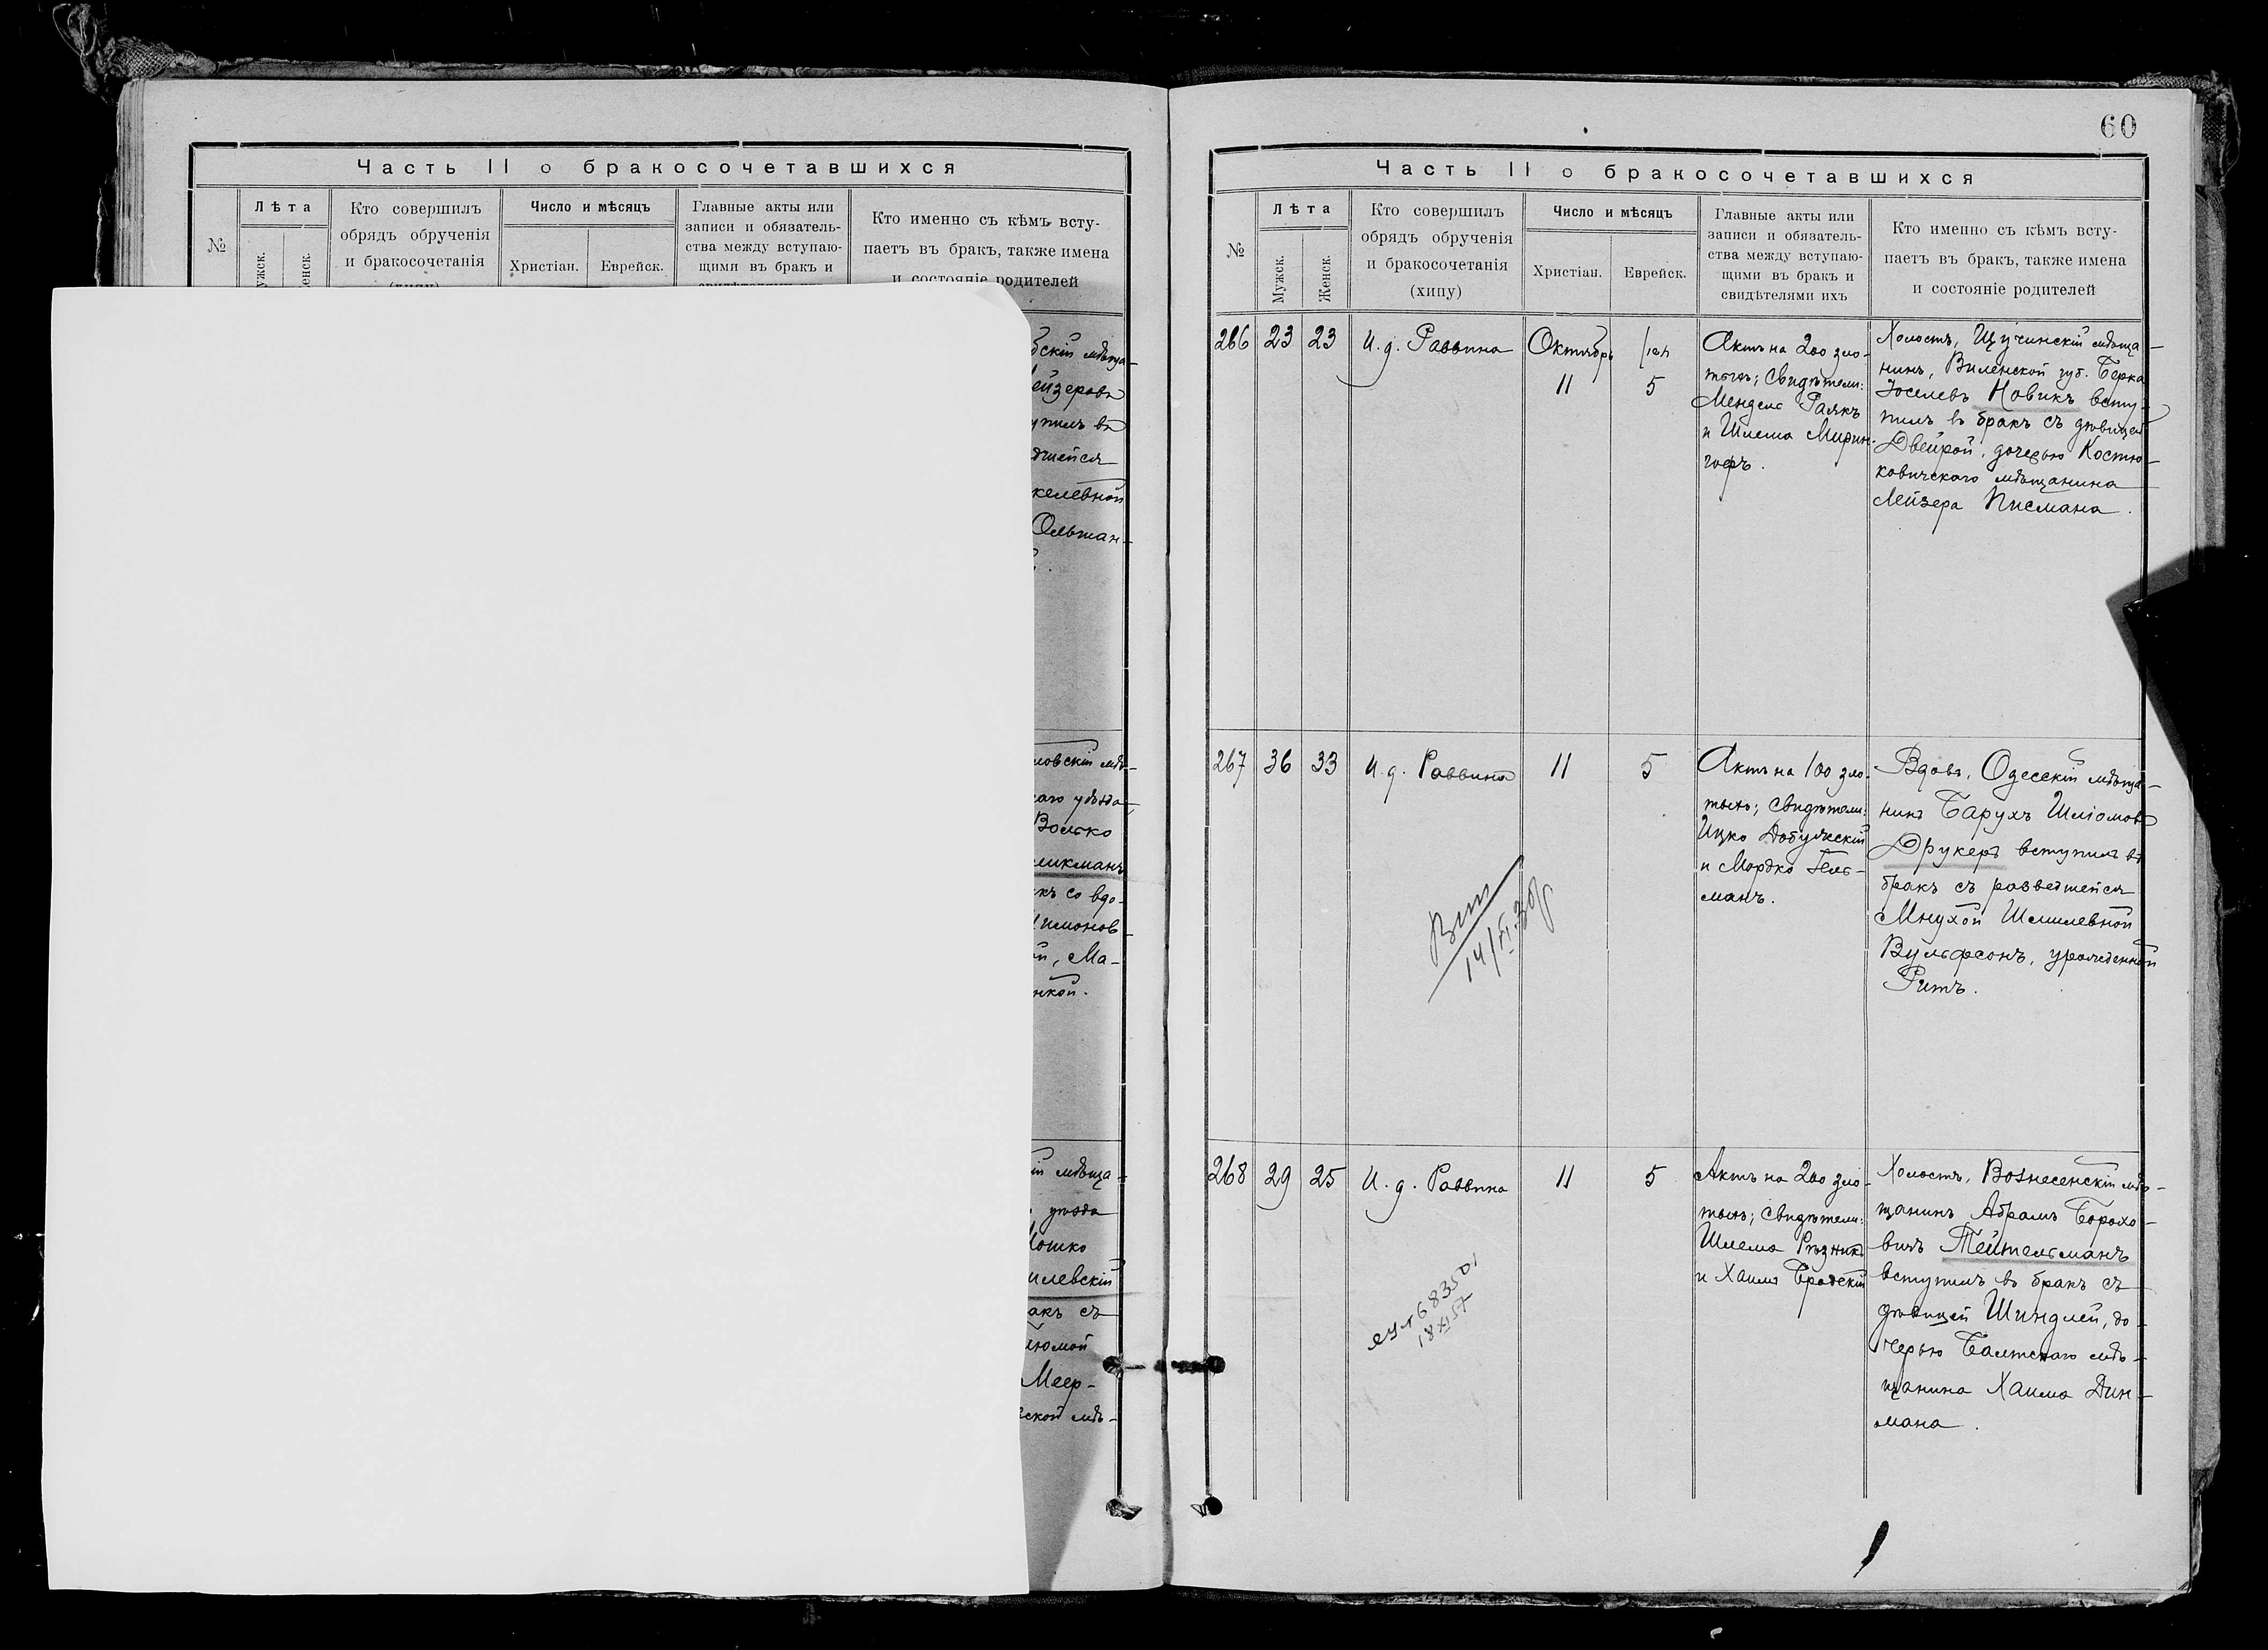 Часть II о бракосочетавшихся
№
Лѣта
ужск.
енск.
Кто совершилъ
обрядъ обрученія
и бракосочетанія
Число и мѣсяцъ
Христіан.
Еврейск.
Главные акты или
записи и обязатель-
ства между вступаю-
щими въ бракъ и
Кто именно съ кѣмъ всту-
паетъ въ бракъ, также имена
и состояніе родителей
бскій мѣща-
ейзеровъ
упилъ въ
дшейся
келевной
Ольшан-
ловскій мѣ-
каго уѣзда
Волько
ликманъ
къ со вдо-
имонов-
ой, Ма-
нкой.
ій мѣща-
уѣзда
Мошко
илевскій
акъ съ
люмой
Меер-
ской мѣ-
60
Часть II о бракосочетавшихся
№
Лѣта
Мужск.
Женск.
Кто совершилъ
обрядъ обрученія
и бракосочетанія
(хипу)
Число и мѣсяцъ
Христіан.
Еврейск.
Главные акты или
записи и обязатель-
ства между вступаю-
щими въ бракъ и
свидѣтелями ихъ
Кто именно съ кѣмъ всту-
паетъ въ бракъ, также имена
и состояніе родителей
266 23 23 И. д. Раввина Октябрь
11 5
Актъ на 200 зло-
тыхъ; Свидѣтели:
Мендель Раякъ
и Шлема Мирин-
гофъ.
Холостъ, Щучинскій мѣща-
нинъ, Виленской губ. Берка
Іоселевъ Новикъ всту-
пилъ въ бракъ съ дѣвицей
Двейрой, дочерью Костю-
ковичскаго мѣщанина
Лейзера Писмана.
267 36 33 И. д. Раввина 11 5
Актъ на 100 зло-
тыхъ; Свидѣтели:
Ицко Добужескій
и Мордко Гель-
манъ.
Вдовъ, Одесскій мѣща-
нинъ Барухъ Шліомовъ
Друкеръ вступилъ въ
бракъ съ разведшейся
Мнухой Шмилевной
Вульфсонъ, урожденной
Ритъ.
14/VI 30г
268 29 25 И. д. Раввина 11 5
Актъ на 200 зло-
тыхъ; Свидѣтели:
Шлема Рѣзникъ
и Хаимъ Бродскій
Холостъ, Вознесенскій мѣ-
щанинъ Абрамъ Борохо-
вичъ Тейтельманъ
вступилъ въ бракъ съ
дѣвицей Шиндлей, до-
черью Балтскаго мѣ-
щанина Хаима Дин-
мана.
683501
18 XI 57